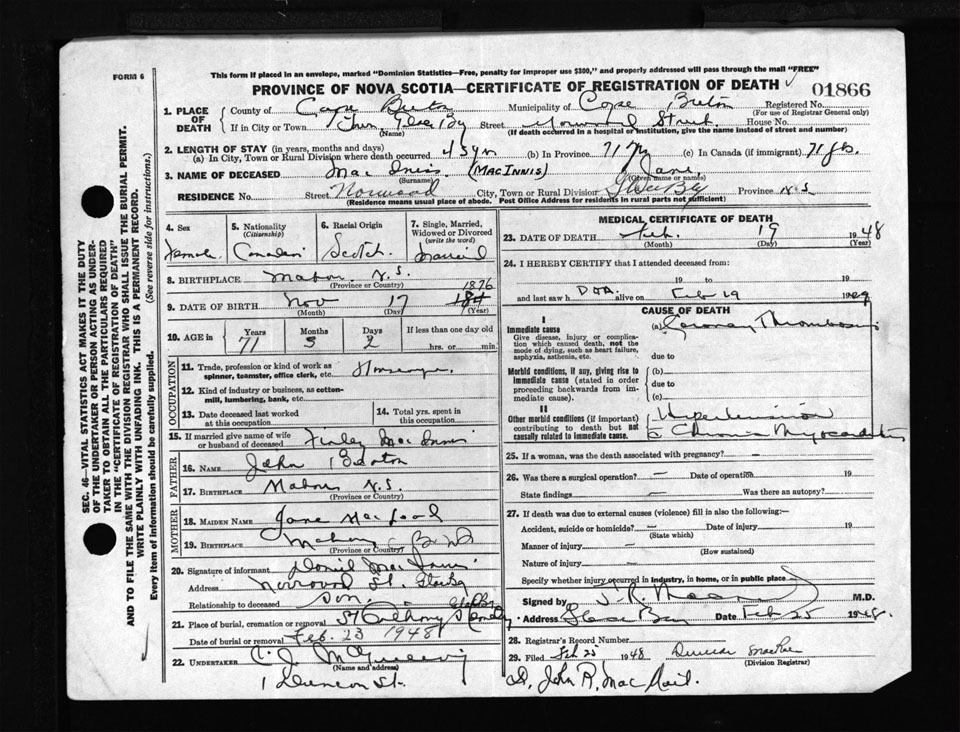 FORM 6
This form if placed in an envelope, marked "Dominion Statistics—Free, penalty for improper use $300," and properly addressed will pass through the mail "FREE"
PROVINCE OF NOVA SCOTIA—CERTIFICATE OF REGISTRATION OF DEATH
01866
1. PLACE OF DEATH County of Cape Breton Municipality of Cape Breton Registered No.
(For use of Registrar General only)
If in City or Town Town Glace Bay Street House No.
(Name) (If death occurred in a hospital or institution, give the name instead of street and number)
2. LENGTH OF STAY (in years, months and days)
(a) In City, Town or Rural Division where death occurred 45 yrs (b) In Province 71 yrs (c) In Canada (if immigrant) 71 yrs.
3. NAME OF DECEASED Mac Innis (MACINNIS) Jane
(Surname) (Given name or names)
RESIDENCE No. Street Norwood City, Town or Rural Division Glace Bay Province N.S
(Residence means usual place of abode. Post Office Address for residents in rural parts not sufficient)
4. Sex 5. Nationality (Citizenship) 6. Racial Origin 7. Single, Married, Widowed or Divorced (write the word)
Female Canadian Scotch Married
8. BIRTHPLACE Mabou N.S.
(Province or Country)
9. DATE OF BIRTH Nov 17 1876
(Month) (Day) (Year)
10. AGE in Years Months Days If less than one day old
71 3 2 hrs. or min.
OCCUPATION
11. Trade, profession or kind of work as spinner, teamster, office clerk, etc.
12. Kind of industry or business, as cotton-mill, lumbering, bank, etc.
13. Date deceased last worked at this occupation 14. Total yrs. spent in this occupation
15. If married give name of wife or husband of deceased Finlay Mac Innis
FATHER
16. NAME John Beaton
17. BIRTHPLACE Mabou N.S.
(Province or Country)
MOTHER
18. MAIDEN NAME Jane MacLeod
19. BIRTHPLACE
(Province or Country)
20. Signature of informant Daniel MacInnis
Address Norwood St. Glace Bay
Relationship to deceased son.
21. Place of burial, cremation or removal St Anthony
Date of burial or removal Feb. 23 1948
22. UNDERTAKER C. J.
(Name and address)
1 Duncan St.
MEDICAL CERTIFICATE OF DEATH
23. DATE OF DEATH Feb. 19 1948
(Month) (Day) (Year)
24. I HEREBY CERTIFY that I attended deceased from:
19 to 19
and last saw h DOA. alive on Feb 19 19
CAUSE OF DEATH
I
Immediate cause
Give disease, injury or complication which caused death, not the mode of dying, such as heart failure, asphyxia, asthenia, etc.
(a) Coronary Thrombosis
due to
Morbid conditions, if any, giving rise to immediate cause (stated in order proceeding backwards from immediate cause).
(b)
due to
(c)
II
Other morbid conditions (if important) contributing to death but not causally related to immediate cause.
Hypertension
Chronic Myocarditis
25. If a woman, was the death associated with pregnancy? —
26. Was there a surgical operation? — Date of operation 19
State findings — Was there an autopsy?
27. If death was due to external causes (violence) fill in also the following:—
Accident, suicide or homicide? — Date of injury 19
(State which)
Manner of injury —
(How sustained)
Nature of injury —
Specify whether injury occurred in industry, in home, or in public place
Signed by M.D.
Address Glace Bay Date Feb 25 1948.
28. Registrar's Record Number
29. Filed Feb 25 1948 Duncan MacRae
(Division Registrar)
D. John R. MacNeil.
SEC. 46—VITAL STATISTICS ACT MAKES IT THE DUTY OF THE UNDERTAKER OR PERSON ACTING AS UNDERTAKER TO OBTAIN ALL THE PARTICULARS REQUIRED IN THE "CERTIFICATE OF REGISTRATION OF DEATH" AND TO FILE THE SAME WITH THE DIVISION REGISTRAR WHO SHALL ISSUE THE BURIAL PERMIT.
WRITE PLAINLY WITH UNFADING INK. THIS IS A PERMANENT RECORD.
Every item of information should be carefully supplied. (See reverse side for instructions.)